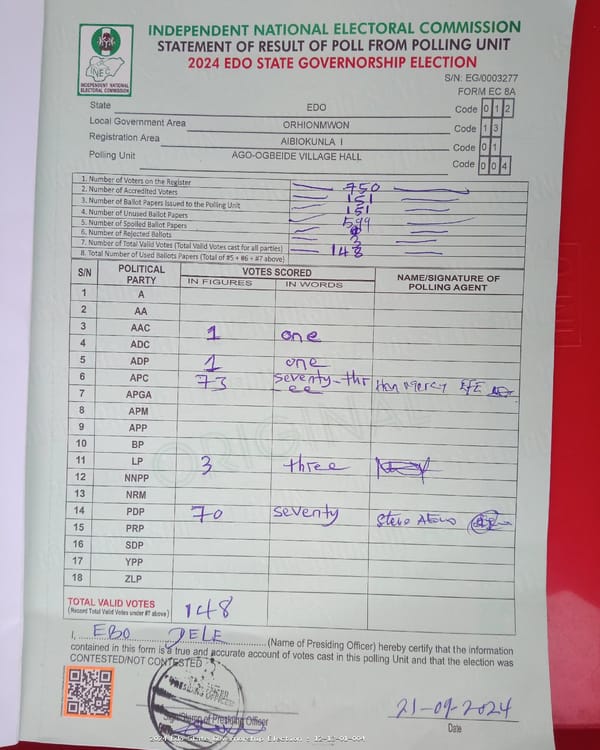 INDEPENDENT NATIONAL ELECTORAL COMMISSION
STATEMENT OF RESULT OF POLL FROM POLLING UNIT
2024 EDO STATE GOVERNORSHIP ELECTION
INEC
INDEPENDENT NATIONAL
ELECTORAL COMMISSION
S/N: EG/0003277
FORM EC 8A
State EDO Code 0 1 2
Local Government Area ORHIONMWON Code 1 3
Registration Area AIBIOKUNLA I Code 0 1
Polling Unit AGO-OGBEIDE VILLAGE HALL Code 0 0 4
1. Number of Voters on the Register 750
2. Number of Accredited Voters 151
3. Number of Ballot Papers Issued to the Polling Unit 151
4. Number of Unused Ballot Papers 599
5. Number of Spoiled Ballot Papers 0
6. Number of Rejected Ballots 3
7. Number of Total Valid Votes (Total Valid Votes cast for all parties) 148
8. Total Number of Used Ballots Papers (Total of #5 + #6 + #7 above)
S/N POLITICAL PARTY VOTES SCORED NAME/SIGNATURE OF POLLING AGENT
IN FIGURES IN WORDS
1 A
2 AA
3 AAC 1 one
4 ADC
5 ADP 1 one
6 APC 73 seventy-thr Hon Mercy EFE
-ee
7 APGA
8 APM
9 APP
10 BP
11 LP 3 three
12 NNPP
13 NRM
14 PDP 70 seventy
15 PRP
16 SDP
17 YPP
18 ZLP
ORIGINAL
TOTAL VALID VOTES 148
(Record Total Valid Votes under #7 above)
I, EBO DELE (Name of Presiding Officer) hereby certify that the information
contained in this form is a true and accurate account of votes cast in this polling Unit and that the election was
CONTESTED/NOT CONTESTED
PRESIDING OFFICER
Sign/Stamp of Presiding Officer
21-09-2024
Date
2024 Edo State Governorship Election : 12-13-01-004